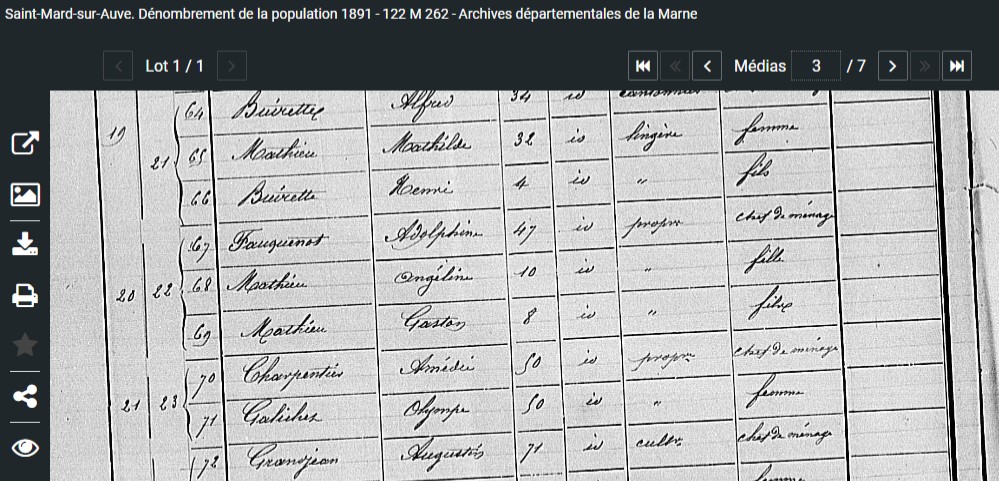 Saint-Mard-sur-Auve. Dénombrement de la population 1891 - 122 M 262 - Archives départementales de la Marne
Lot 1 / 1 Médias 3 / 7
64 Buirette Alfred 34 id cantonnier
19 21 65 Mathieu Mathilde 32 id lingère femme
66 Buirette Henri 4 id " fils
67 Fauquenot Adolphine 47 id propre chef de ménage
20 22 68 Mathieu Angéline 10 id " fille
69 Mathieu Gaston 8 id " fils
70 Charpentier Amédée 50 id propre chef de ménage
21 23 71 Galichet Olympe 50 id " femme
72 Grandjean Augustin 71 id cultr chef de ménage
femme